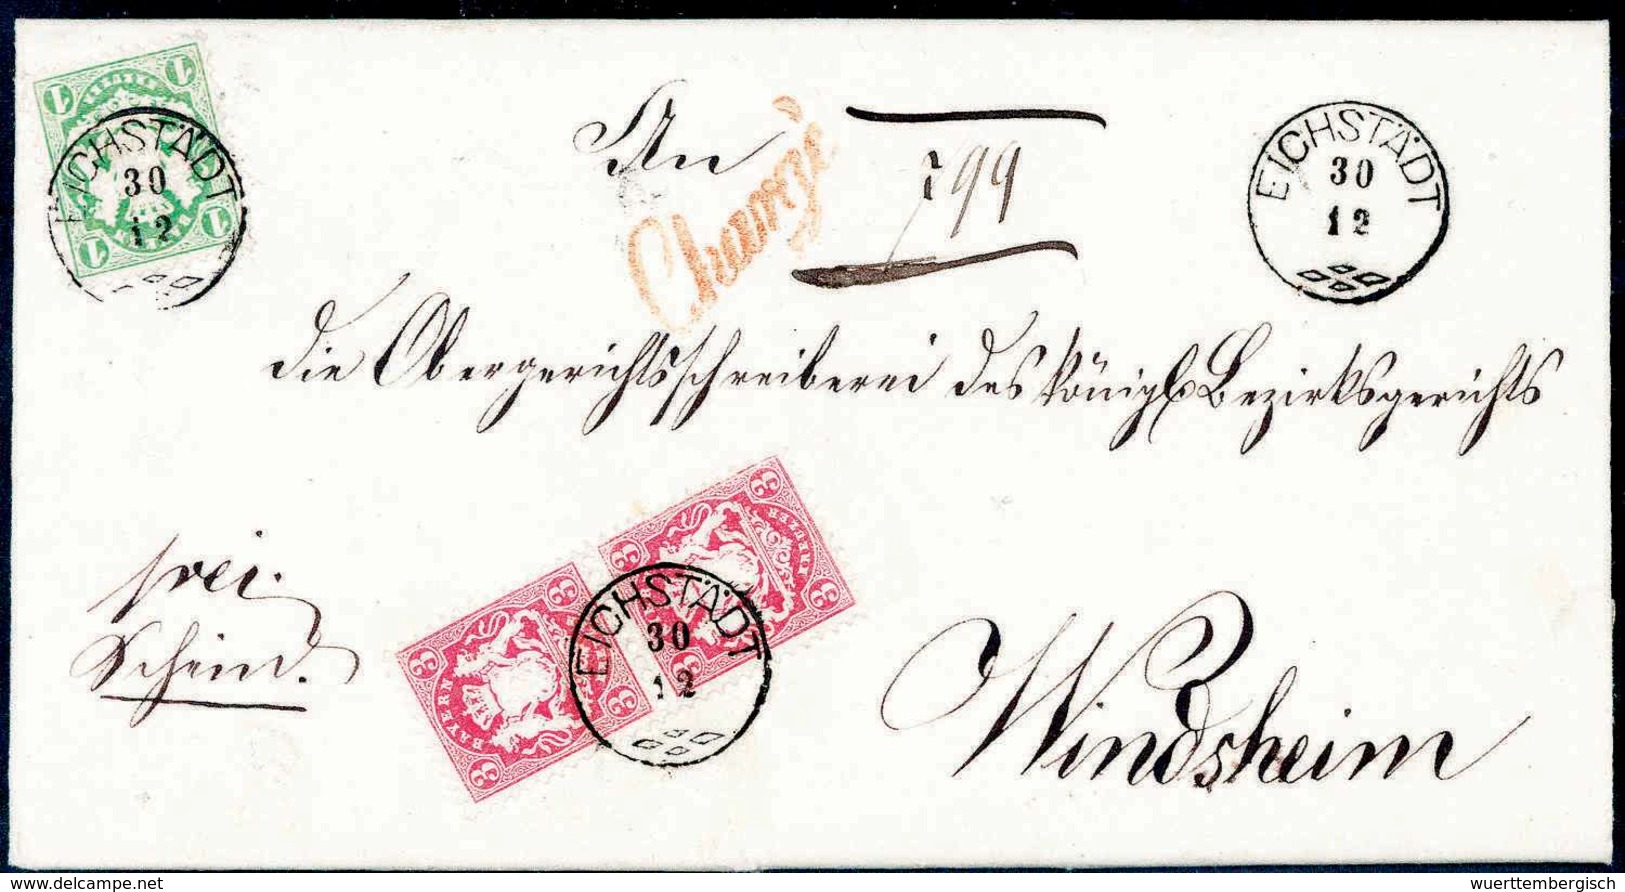 1 1
EICHSTÄDT
30
12
1 1
An
Chargé
799
EICHSTÄDT
30
12
die Obergerichtsschreiberei des königl. Bezirksgerichts
frei.
Schein.
3 3
BAYERN
3 3
3 3
KREUZER
3 3
EICHSTÄDT
30
12
Windsheim
delcampe.net
wuerttembergisch